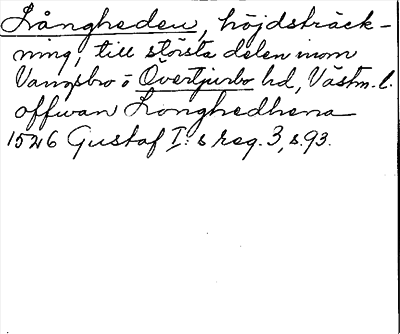 Långheden, höjdsträck-
ning, till största delen inom
Vangsbro o Övertjurbo hd, Västm. l.
offwan Longhedhena
1526 Gustaf I:s reg. 3, s. 93.